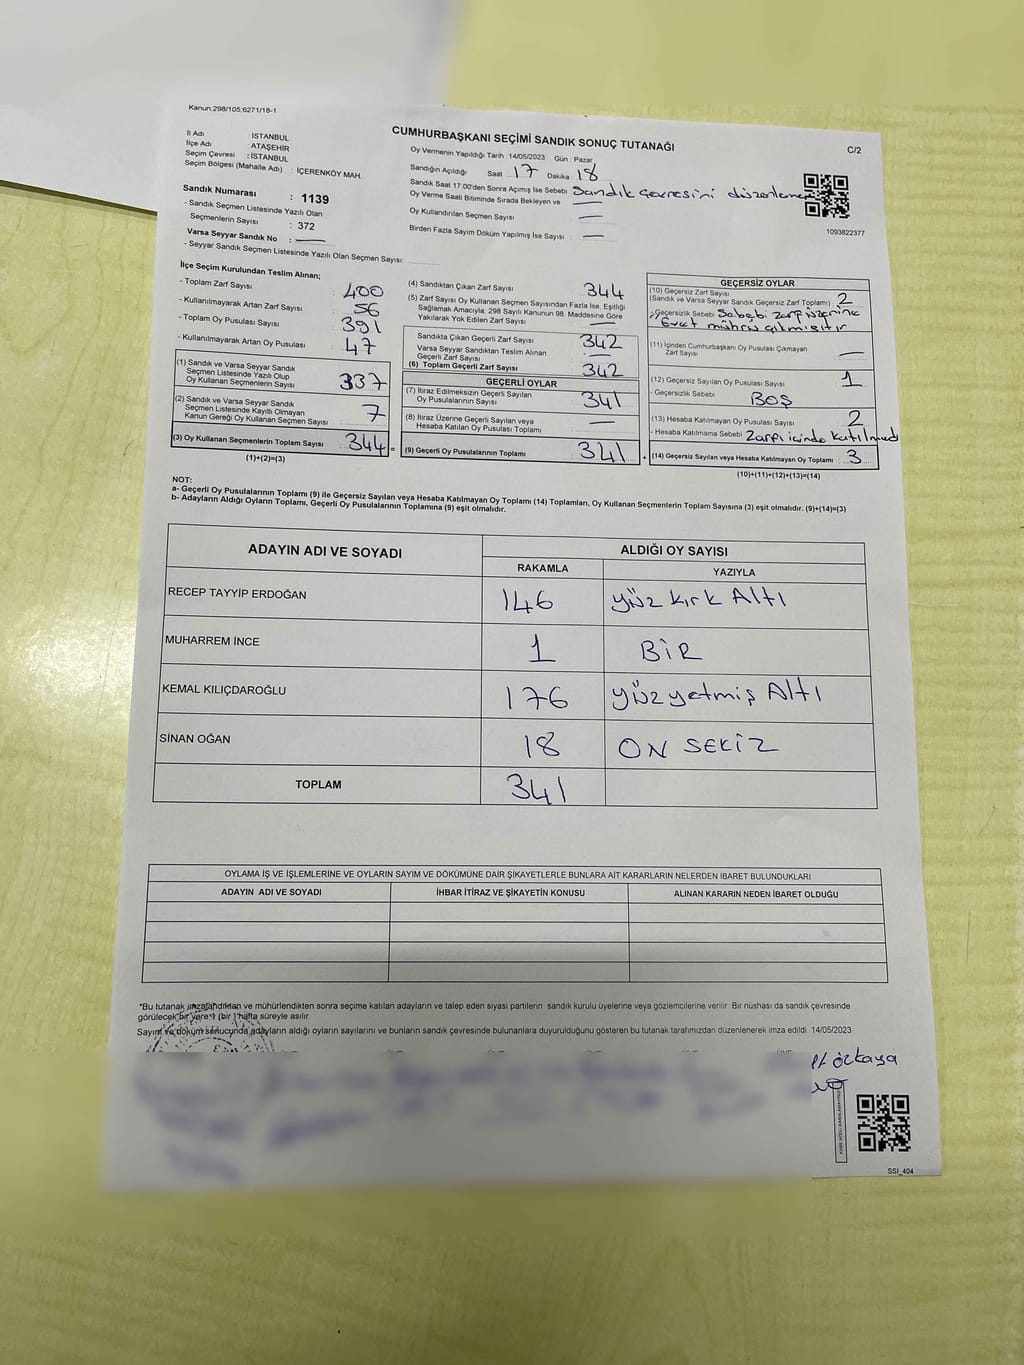 Kanun:298/105,6271/18-1
CUMHURBAŞKANI SEÇİMİ SANDIK SONUÇ TUTANAĞI
C/2
İl Adı : İSTANBUL
İlçe Adı : ATAŞEHİR
Seçim Çevresi : İSTANBUL
Seçim Bölgesi (Mahalle Adı) : İÇERENKÖY MAH.
Sandık Numarası : 1139
- Sandık Seçmen Listesinde Yazılı Olan
Seçmenlerin Sayısı : 372
Varsa Seyyar Sandık No : —
- Seyyar Sandık Seçmen Listesinde Yazılı Olan Seçmen Sayısı:
Oy Vermenin Yapıldığı Tarih : 14/05/2023 Gün : Pazar
Sandığın Açıldığı Saat : 17 Dakika : 18
Sandık Saat 17:00'den Sonra Açımış İse Sebebi : Sandık çevresini düzenleme
Oy Verme Saati Bitiminde Sırada Bekleyen ve
Oy Kullandırılan Seçmen Sayısı : —
Birden Fazla Sayım Döküm Yapılmış İse Sayısı : —
1093822377
İlçe Seçim Kurulundan Teslim Alınan;
- Toplam Zarf Sayısı : 400
- Kullanılmayarak Artan Zarf Sayısı : 56
- Toplam Oy Pusulası Sayısı : 391
- Kullanılmayarak Artan Oy Pusulası : 47
(1) Sandık ve Varsa Seyyar Sandık
Seçmen Listesinde Yazılı Olup
Oy Kullanan Seçmenlerin Sayısı : 337
(2) Sandık ve Varsa Seyyar Sandık
Seçmen Listesinde Kayıtlı Olmayan
Kanun Gereği Oy Kullanan Seçmen Sayısı : 7
(3) Oy Kullanan Seçmenlerin Toplam Sayısı : 344 =
(1)+(2)=(3)
(4) Sandıktan Çıkan Zarf Sayısı : 344
(5) Zarf Sayısı Oy Kullanan Seçmen Sayısından Fazla İse, Eşitliği
Sağlamak Amacıyla; 298 Sayılı Kanunun 98. Maddesine Göre
Yakılarak Yok Edilen Zarf Sayısı : —
Sandıkta Çıkan Geçerli Zarf Sayısı : 342
Varsa Seyyar Sandıktan Teslim Alınan
Geçerli Zarf Sayısı : —
(6) Toplam Geçerli Zarf Sayısı : 342
GEÇERLİ OYLAR
(7) İtiraz Edilmeksizin Geçerli Sayılan
Oy Pusulalarının Sayısı : 341
(8) İtiraz Üzerine Geçerli Sayılan veya
Hesaba Katılan Oy Pusulası Toplamı : —
(9) Geçerli Oy Pusulalarının Toplamı : 341 +
GEÇERSİZ OYLAR
(10) Geçersiz Zarf Sayısı
(Sandık ve Varsa Seyyar Sandık Geçersiz Zarf Toplamı) : 2
- Geçersizlik Sebebi : Sebebi zarf üzerine
Evet mührü çıkmıştır
(11) İçinden Cumhurbaşkanı Oy Pusulası Çıkmayan
Zarf Sayısı : —
(12) Geçersiz Sayılan Oy Pusulası Sayısı : 1
- Geçersizlik Sebebi : BOŞ
(13) Hesaba Katılmayan Oy Pusulası Sayısı : 2
- Hesaba Katılmama Sebebi : Zarfı içinde katılmadı
(14) Geçersiz Sayılan veya Hesaba Katılmayan Oy Toplamı : 3
(10)+(11)+(12)+(13)=(14)
NOT:
a- Geçerli Oy Pusulalarının Toplamı (9) ile Geçersiz Sayılan veya Hesaba Katılmayan Oy Toplamı (14) Toplamları, Oy Kullanan Seçmenlerin Toplam Sayısına (3) eşit olmalıdır. (9)+(14)=(3)
b- Adayların Aldığı Oyların Toplamı, Geçerli Oy Pusulalarının Toplamına (9) eşit olmalıdır.
ADAYIN ADI VE SOYADI ALDIĞI OY SAYISI
RAKAMLA YAZIYLA
RECEP TAYYİP ERDOĞAN 146 yüz kırk Altı
MUHARREM İNCE 1 BİR
KEMAL KILIÇDAROĞLU 176 yüz yetmiş Altı
SİNAN OĞAN 18 ON SEKİZ
TOPLAM 341
OYLAMA İŞ VE İŞLEMLERİNE VE OYLARIN SAYIM VE DÖKÜMÜNE DAİR ŞİKAYETLERLE BUNLARA AİT KARARLARIN NELERDEN İBARET BULUNDUKLARI
ADAYIN ADI VE SOYADI İHBAR İTİRAZ VE ŞİKAYETİN KONUSU ALINAN KARARIN NEDEN İBARET OLDUĞU
*Bu tutanak imzalandıktan ve mühürlendikten sonra seçime katılan adayların ve talep eden siyasi partilerin sandık kurulu üyelerine veya gözlemcilerine verilir. Bir nüshası da sandık çevresinde
görülecek bir yere 1 (bir) hafta süreyle asılır.
Sayım ve döküm sonucunda adayların aldığı oyların sayılarını ve bunların sandık çevresinde bulunanlara duyurulduğunu gösteren bu tutanak tarafımızdan düzenlenerek imza edildi. 14/05/2023
özkaya
SSİ_404